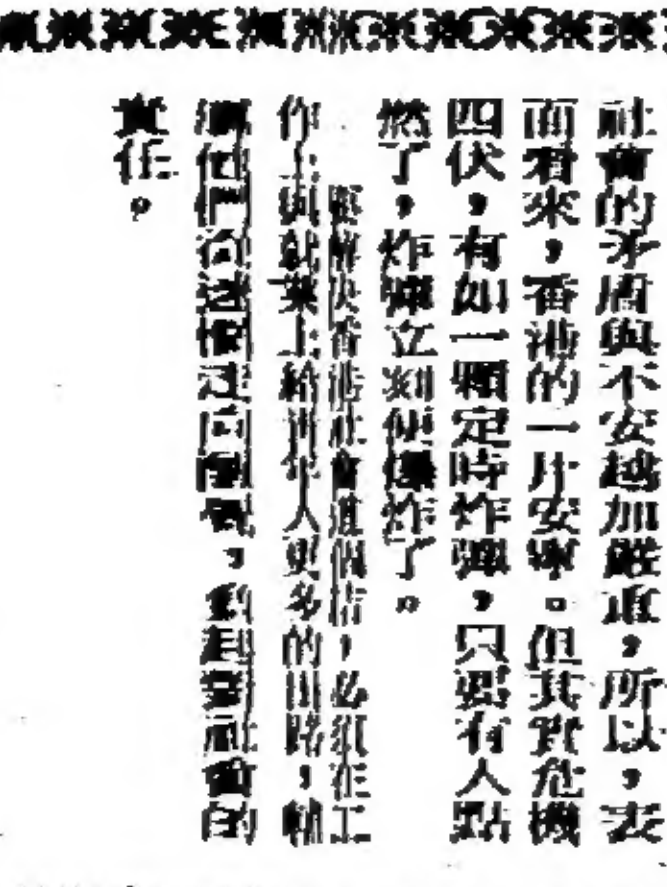 社會的矛盾與不安越加嚴重，所以，表
面看來，香港的一片安寧。但其實危機
四伏，有如一顆定時炸彈，只要有人點
燃了，炸彈立刻便爆炸了。
要解決香港社會這個結，必須在工
作上與就業上給青年人更多的出路，
他們從迷惘走向，負起對社會的
責任。